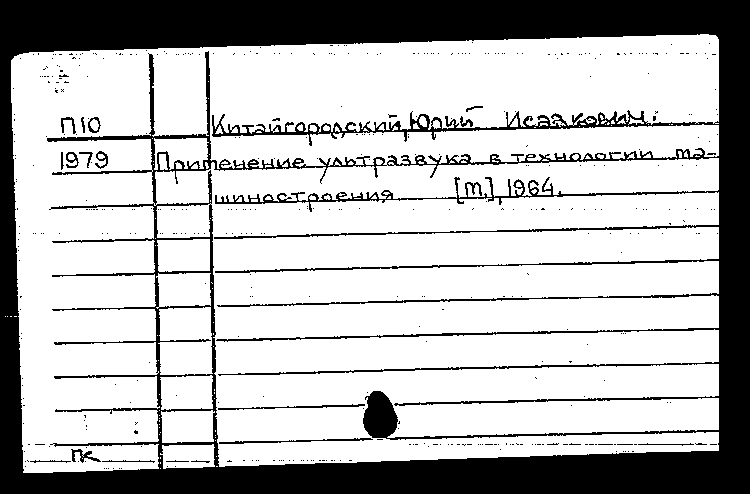 П10 Китайгородский, Юрий Исаакович.
1979 Применение ультразвука в технологии ма-
шиностроения [М.], 1964.
пк